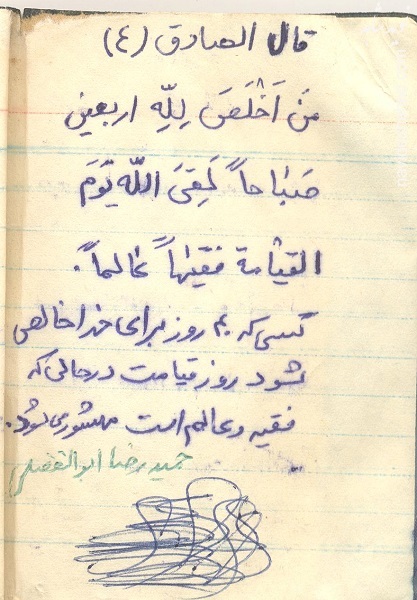 قال الصادق (ع)
مَنْ اَخْلَصَ لِلّهِ اربعین
صَبٰاحاً لَقِیَ اللّه یَوْمَ
القیٰامة فقیهاً عٰالماً.
کسی که ۴۰ روز برای خدا خالص
شود روز قیامت در حالی که
فقیه و عالم است محشور می شود.
حمید رضا ابوالفضلی